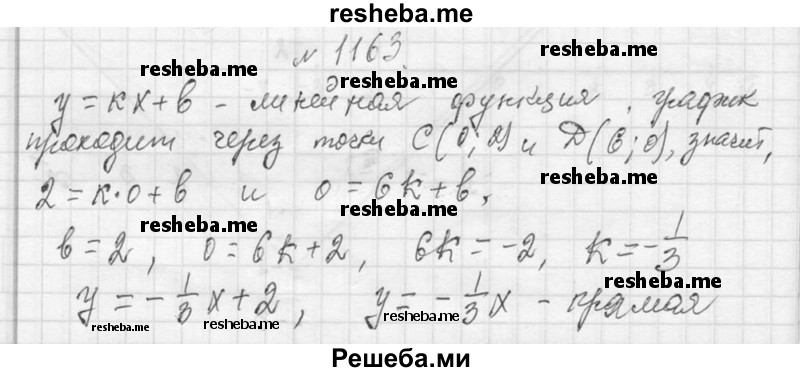 resheba.me
№ 1163.
resheba.me resheba.me resheba.me
y = kx + b - линейная функция, график
проходит через точки C(0; 2) и D(6; 0), значит,
2 = k·0 + b и 0 = 6k + b,
resheba.me resheba.me
b = 2, 0 = 6k + 2, 6k = -2, k = -1/3
resheba.me
y = -1/3 x + 2, y = -1/3 x - прямая
resheba.me resheba.me resheba.me
Решеба.ми